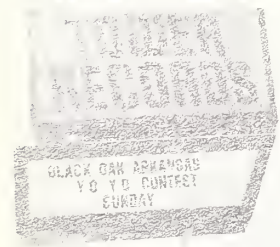 RECORDS
BLACK OAK ARKANSAS
YO YO CONTEST
SUNDAY